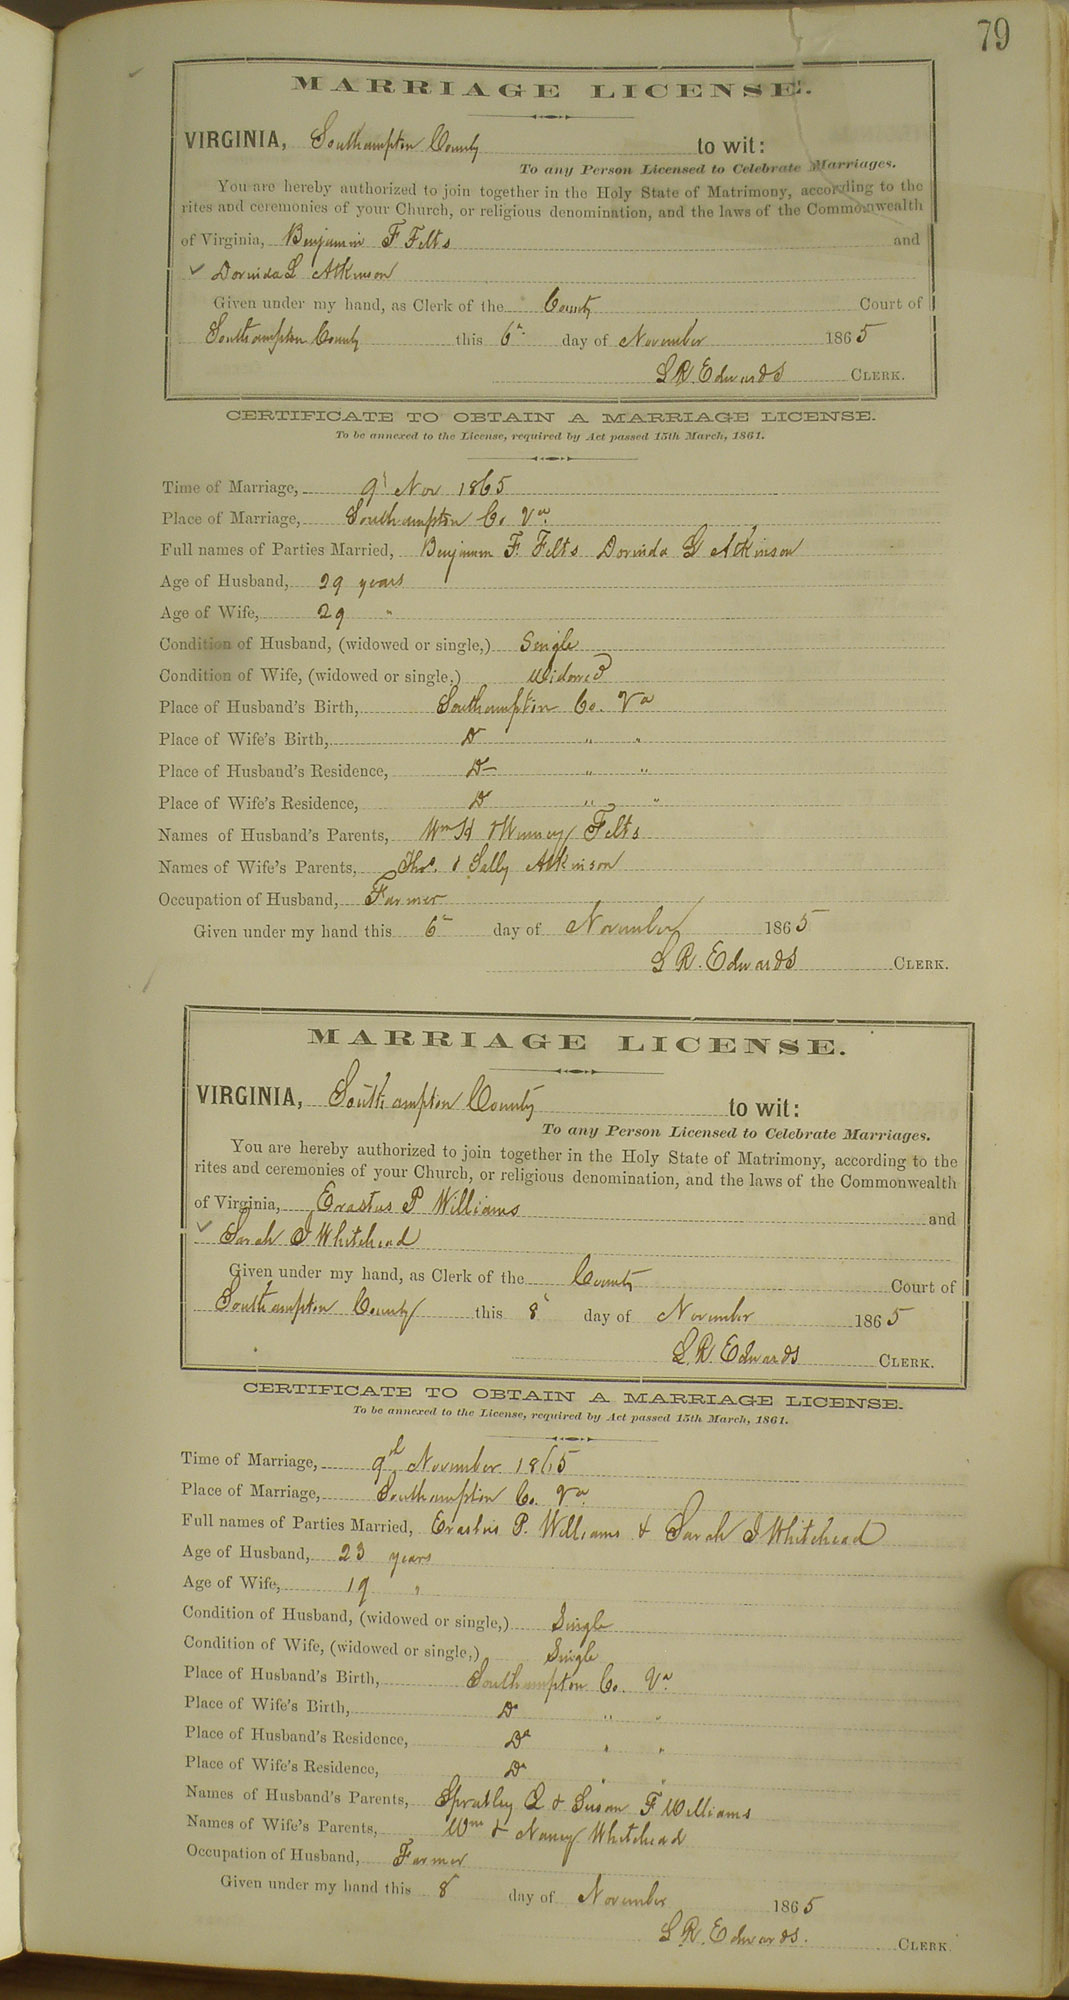 79
MARRIAGE LICENSE.
VIRGINIA, Southampton County to wit:
To any Person Licensed to Celebrate Marriages.
You are hereby authorized to join together in the Holy State of Matrimony, according to the
rites and ceremonies of your Church, or religious denomination, and the laws of the Commonwealth
of Virginia, Benjamin F Felts and
Dorinda L Atkinson
Given under my hand, as Clerk of the County Court of
Southampton County this 6 day of November 1865
L R. Edwards CLERK.
CERTIFICATE TO OBTAIN A MARRIAGE LICENSE.
To be annexed to the License, required by Act passed 15th March, 1861.
Time of Marriage, 9 Nov 1865
Place of Marriage, Southampton Co Va.
Full names of Parties Married, Benjamin F. Felts Dorinda Atkinson
Age of Husband, 29 years
Age of Wife, 29 "
Condition of Husband, (widowed or single,) Single
Condition of Wife, (widowed or single,) Widowed
Place of Husband's Birth, Southampton Co. Va
Place of Wife's Birth, Do " "
Place of Husband's Residence, Do " "
Place of Wife's Residence, Do " "
Names of Husband's Parents, Wm H & Felts
Names of Wife's Parents, Thos. & Sally Atkinson
Occupation of Husband, Farmer
Given under my hand this 6 day of November 1865
L R. Edwards CLERK.
MARRIAGE LICENSE.
VIRGINIA, Southampton County to wit:
To any Person Licensed to Celebrate Marriages.
You are hereby authorized to join together in the Holy State of Matrimony, according to the
rites and ceremonies of your Church, or religious denomination, and the laws of the Commonwealth
of Virginia, Erastus P Williams and
Sarah J Whitehead
Given under my hand, as Clerk of the County Court of
Southampton County this 8 day of November 1865
L. R. Edwards CLERK.
CERTIFICATE TO OBTAIN A MARRIAGE LICENSE.
To be annexed to the License, required by Act passed 15th March, 1861.
Time of Marriage, 9th November 1865
Place of Marriage, Southampton Co. Va.
Full names of Parties Married, Erastus P. Williams & Sarah J Whitehead
Age of Husband, 23 years
Age of Wife, 19 "
Condition of Husband, (widowed or single,) Single
Condition of Wife, (widowed or single,) Single
Place of Husband's Birth, Southampton Co. Va.
Place of Wife's Birth, Do " "
Place of Husband's Residence, Do " "
Place of Wife's Residence, Do " "
Names of Husband's Parents, Spratley & Susan F Williams
Names of Wife's Parents, Wm & Nancy Whitehead
Occupation of Husband, Farmer
Given under my hand this 8 day of November 1865
L R. Edwards. CLERK